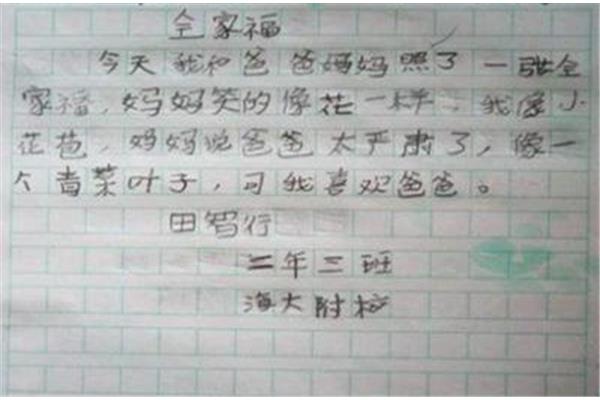 全家福
今天我和爸爸妈妈照了一张全
家福，妈妈笑的像花一样，我像小
花苞，妈妈说爸爸太严肃了，像一
个青菜叶子，可我喜欢爸爸。
田智行
二年三班
海大附校